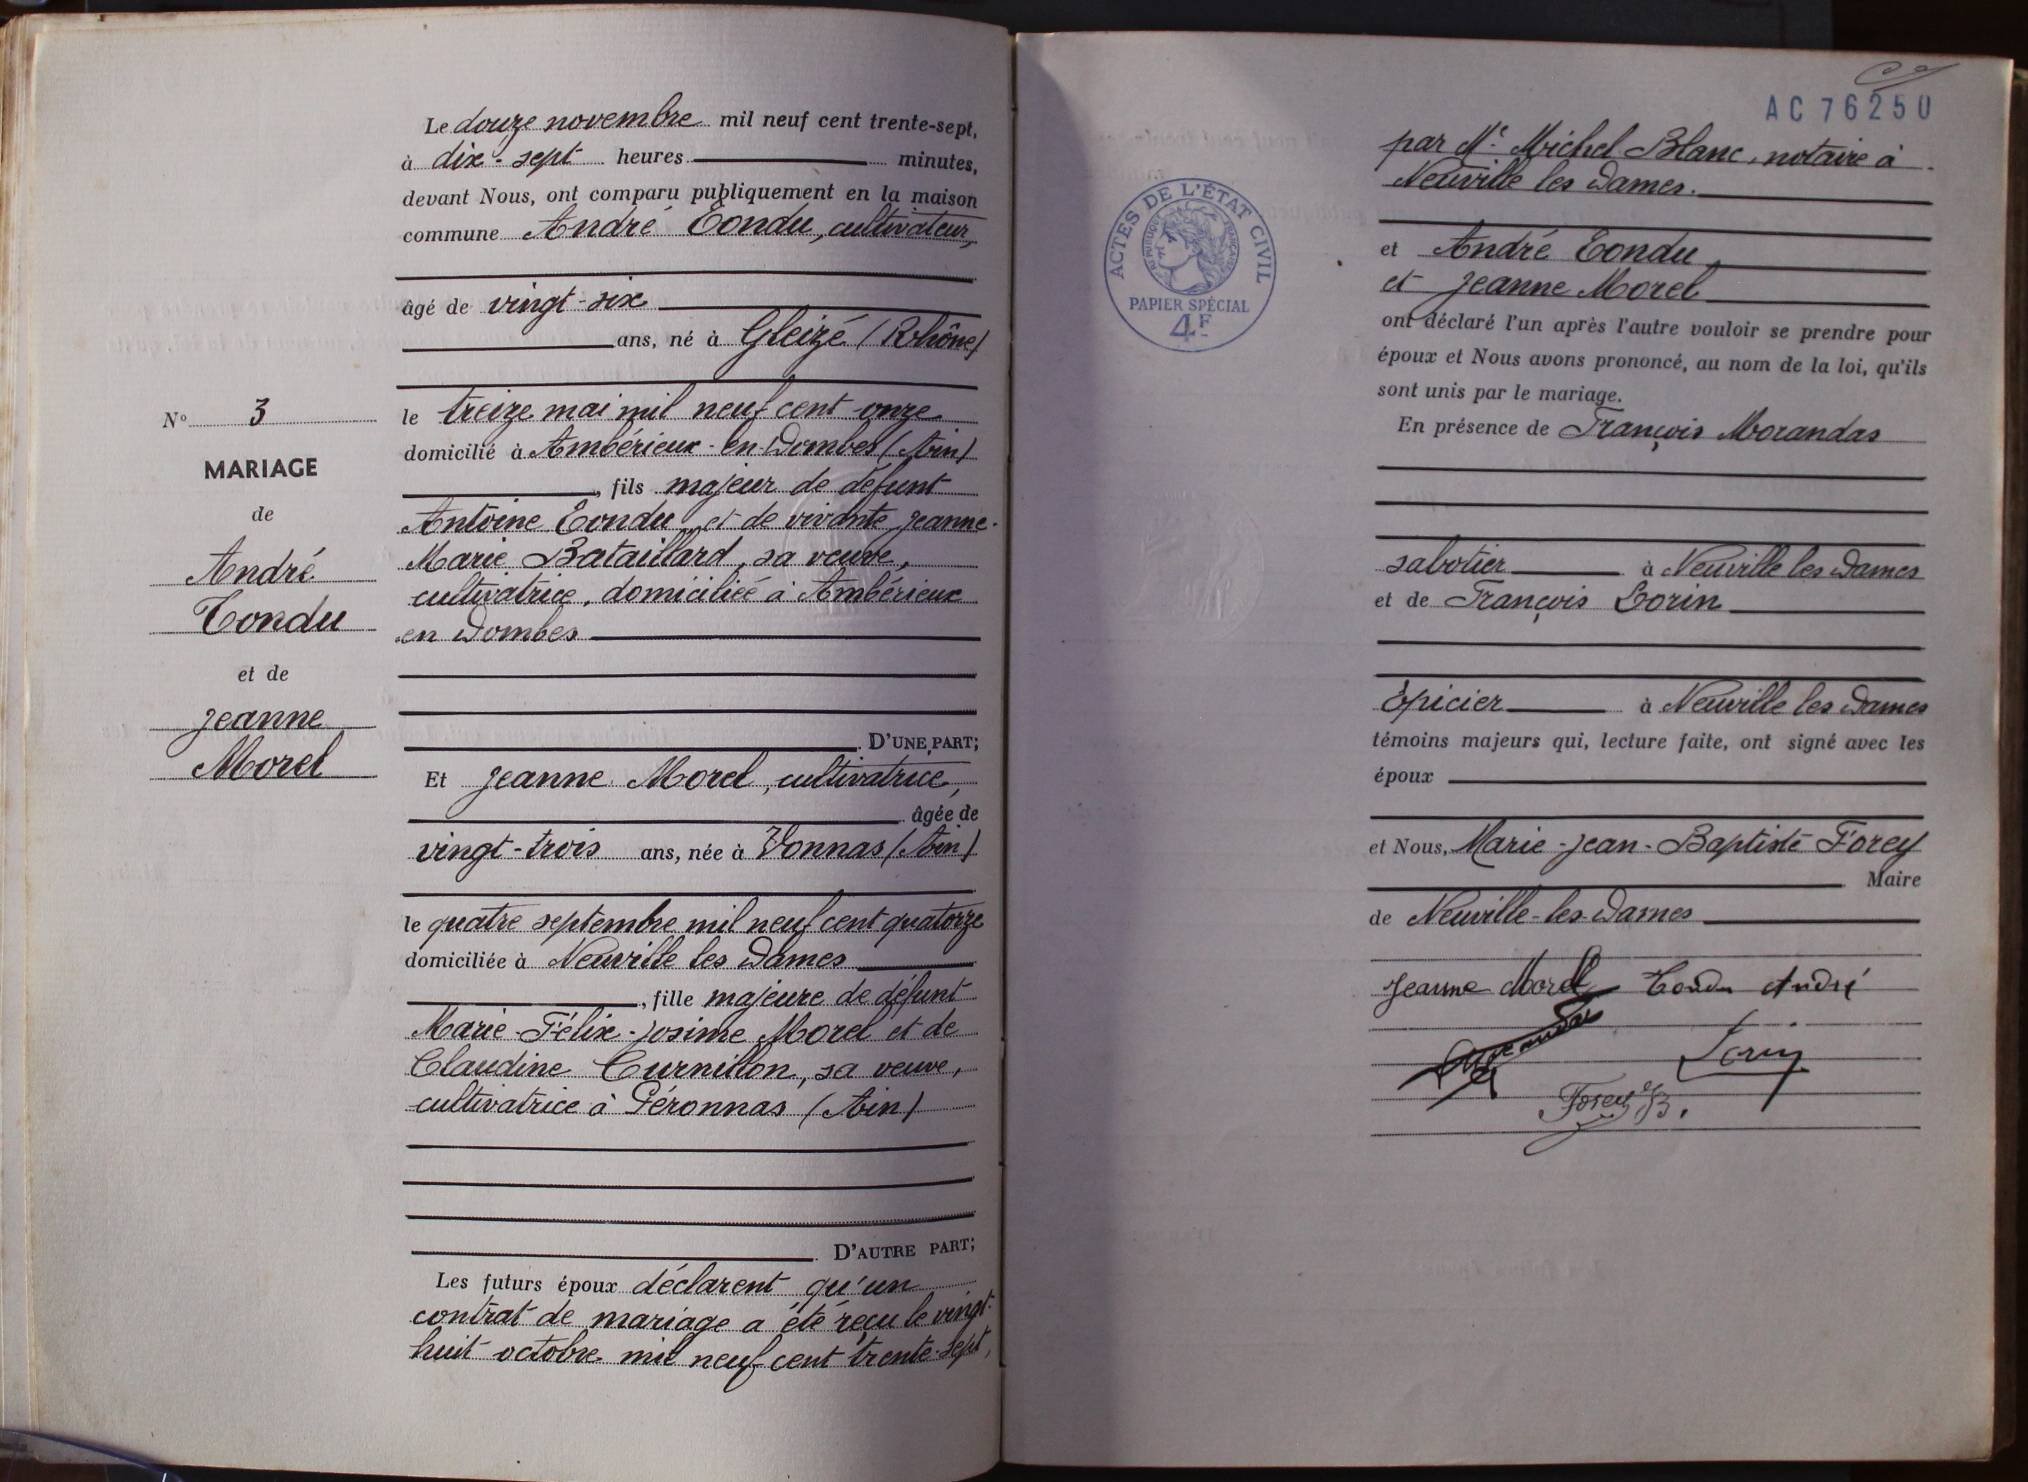 Le douze novembre mil neuf cent trente-sept,
à dix-sept heures minutes,
devant Nous, ont comparu publiquement en la maison
commune André Tondu, cultivateur,
âgé de vingt-six
ans, né à Gleizé (Rhône)
le treize mai mil neuf cent onze
domicilié à Ambérieux-en-Dombes (Ain)
, fils majeur de défunt
Antoine Tondu et de vivante Jeanne-
Marie Bataillard, sa veuve,
cultivatrice, domiciliée à Ambérieux
en Dombes
D'UNE PART;
Et Jeanne Morel, cultivatrice,
âgée de
vingt-trois ans, née à Vonnas (Ain)
le quatre septembre mil neuf cent quatorze
domiciliée à Neuville les Dames
, fille majeure de défunt
Marie-Félix-Josime Morel et de
Claudine Curnillon, sa veuve,
cultivatrice à Péronnas (Ain)
D'AUTRE PART;
Les futurs époux déclarent qu'un
contrat de mariage a été reçu le vingt-
huit octobre mil neuf cent trente-sept,
No 3
MARIAGE
de
André
Tondu
et de
Jeanne
Morel
AC 76250
par Me Michel Blanc, notaire à
Neuville les Dames.
et André Tondu
et Jeanne Morel
ont déclaré l'un après l'autre vouloir se prendre pour
époux et Nous avons prononcé, au nom de la loi, qu'ils
sont unis par le mariage.
En présence de François Morandas
sabotier à Neuville les Dames
et de François Lorin
Épicier à Neuville les Dames
témoins majeurs qui, lecture faite, ont signé avec les
époux
et Nous, Marie-Jean-Baptiste Forey
Maire
de Neuville-les-Dames
Jeanne Morel Tondu André
Morandas Lorin
Forey JB.
ACTES DE L'ÉTAT CIVIL
RÉPUBLIQUE FRANÇAISE
PAPIER SPÉCIAL
4F